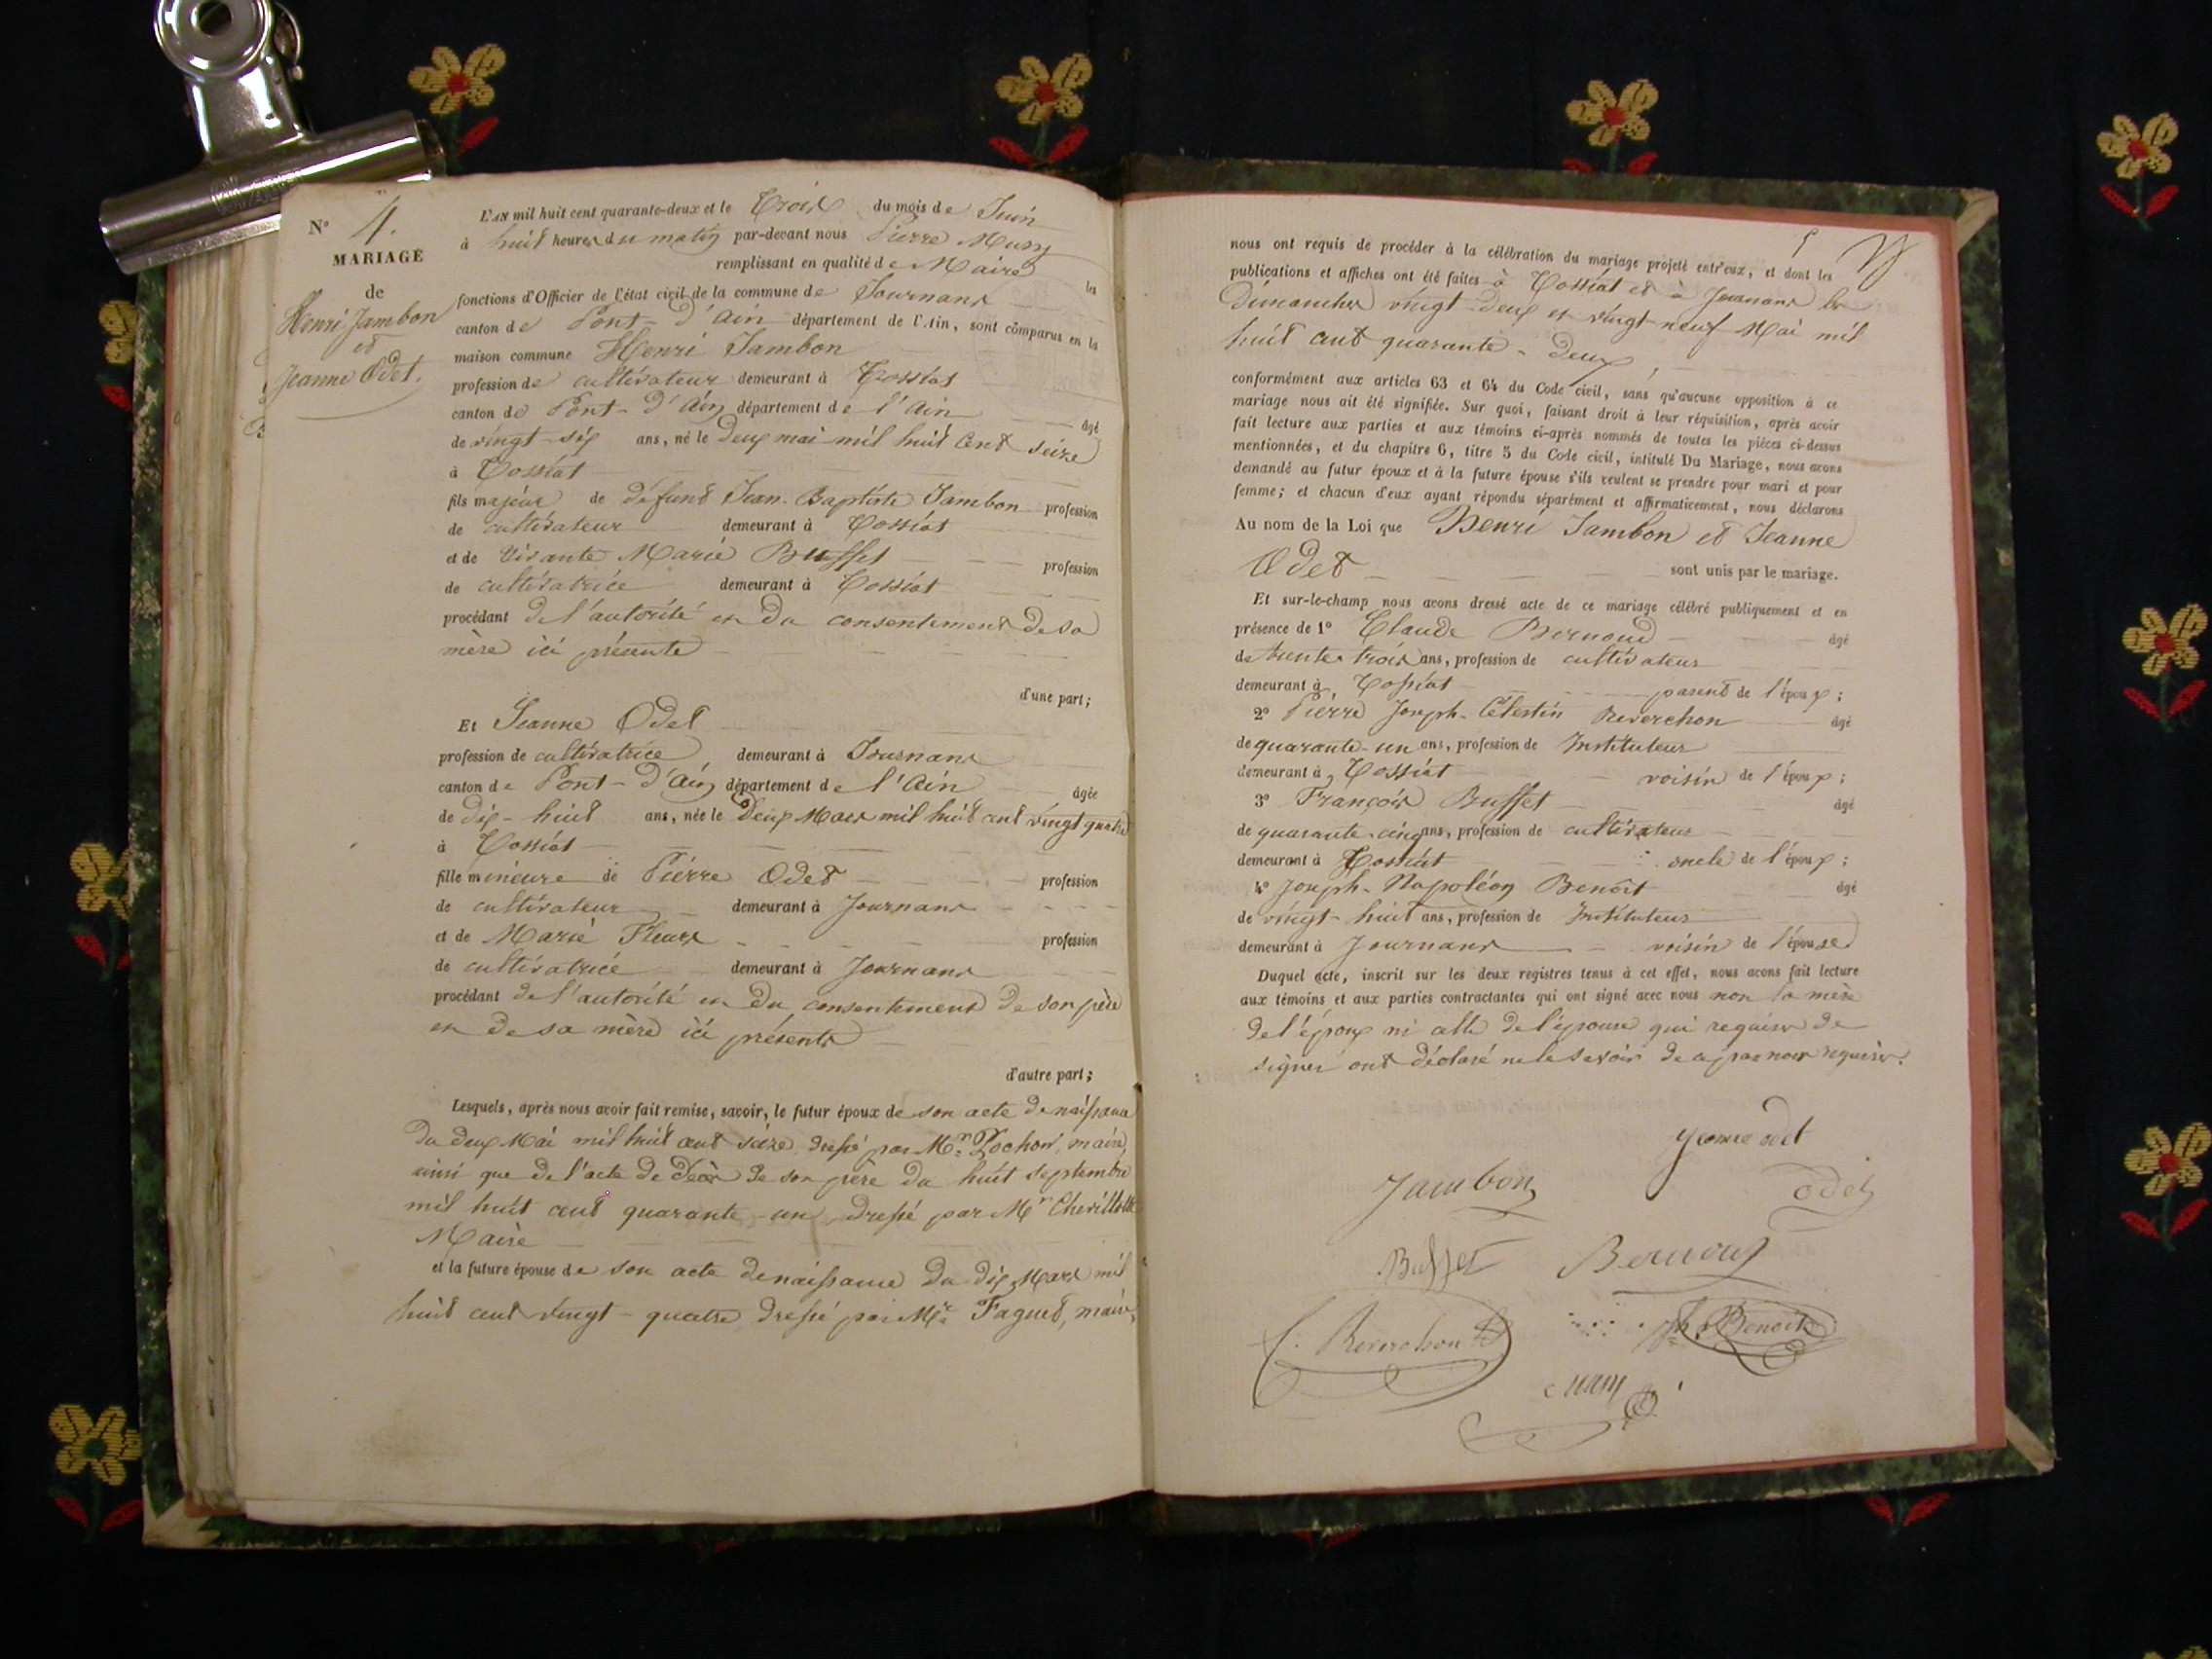 N° 4.
MARIAGE
de
Henri Jambon
et
Jeanne Odet.
L'AN mil huit cent quarante-deux et le Trois du mois de Juin
à huit heures du matin par-devant nous Pierre Mussy
remplissant en qualité de Maire les
fonctions d'Officier de l'état civil de la commune de Journans
canton de Pont-d'Ain département de l'Ain, sont comparus en la
maison commune Henri Jambon
profession de cultivateur demeurant à Tossiat
canton de Pont-d'Ain département de l'Ain âgé
de vingt-six ans, né le Deux mai mil huit Cent seize
à Tossiat
fils majeur de défunt Jean-Baptiste Jambon profession
de cultivateur demeurant à Tossiat
et de vivante Marie Buffet profession
de cultivatrice demeurant à Tossiat
procédant de l'autorité et du consentement de sa
mère ici présente
d'une part;
Et Jeanne Odet
profession de cultivatrice demeurant à Journans
canton de Pont-d'Ain département de l'Ain âgée
de dix-huit ans, née le Deux Mars mil huit cent vingt quatre
à Tossiat
fille mineure de Pierre Odet profession
de cultivateur demeurant à Journans
et de Marie profession
de cultivatrice demeurant à Journans
procédant de l'autorité et du consentement de son père
et de sa mère ici présents
d'autre part;
Lesquels, après nous avoir fait remise, savoir, le futur époux de son acte de naissance
du deux Mai mil huit cent seize dressé par Mr Rochon, maire,
ainsi que de l'acte de décès de son père du huit septembre
mil huit cent quarante-un, dressé par Mr Chevillotte
Maire
et la future épouse de son acte de naissance du dix Mars mil
huit cent vingt-quatre dressé par Mr Faguet, maire,
nous ont requis de procéder à la célébration du mariage projeté entr'eux, et dont les
publications et affiches ont été faites à Tossiat et à Journans les
Dimanches vingt-deux et vingt-neuf Mai mil
huit cent quarante-deux,
conformément aux articles 63 et 64 du Code civil, sans qu'aucune opposition à ce
mariage nous ait été signifiée. Sur quoi, faisant droit à leur réquisition, après avoir
fait lecture aux parties et aux témoins ci-après nommés de toutes les pièces ci-dessus
mentionnées, et du chapitre 6, titre 5 du Code civil, intitulé Du Mariage, nous avons
demandé au futur époux et à la future épouse s'ils veulent se prendre pour mari et pour
femme; et chacun d'eux ayant répondu séparément et affirmativement, nous déclarons
Au nom de la Loi que Henri Jambon et Jeanne
Odet sont unis par le mariage.
Et sur-le-champ nous avons dressé acte de ce mariage célébré publiquement et en
présence de 1° Claude Bernoud âgé
de trente-trois ans, profession de cultivateur
demeurant à Tossiat parent de l'époux;
2° Pierre Joseph-Célestin Reverchon âgé
de quarante-un ans, profession de Instituteur
demeurant à Tossiat voisin de l'époux;
3° François Buffet âgé
de quarante-cinq ans, profession de cultivateur
demeurant à Tossiat oncle de l'époux;
4° Joseph-Napoléon Benoît âgé
de vingt-huit ans, profession de Instituteur
demeurant à Journans voisin de l'épouse
Duquel acte, inscrit sur les deux registres tenus à cet effet, nous avons fait lecture
aux témoins et aux parties contractantes qui ont signé avec nous non la mère
de l'époux ni celle de l'épouse qui requises de
signer ont déclaré ne le savoir de ce par nous requises.
Jeanne odet
Jambon odet
Buffet Bernoud
C. Reverchon Jh. Benoit